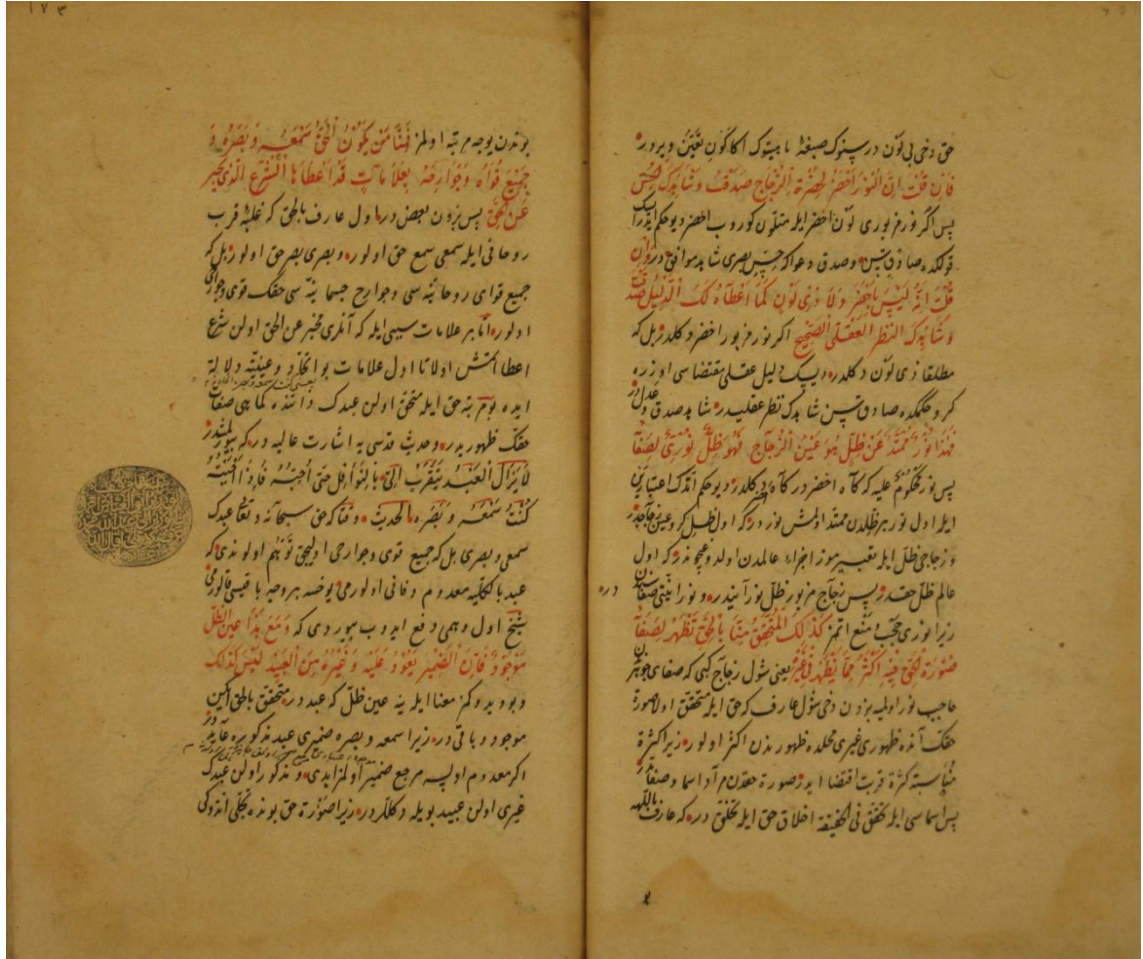 حق دخی بی لون در سنوک صبغهٔ ماهیتوک اکا کون تعین ویرور
فَاِنْ قُلْتَ اِنَّ النُّورَ اَخْضَرُ لِخُضْرَةِ الزُّجَاجِ صَدَقْتَ وَشَاهِدُكَ الْحِسُّ
پس اکر نور مزبوری لون اخضر ایله متلون کوروب اخضر دیو حکم ایدرسک
قولکده صادقسن و صدق دعواکه حس بصری شاهد موافق در وَاِنْ
قُلْتَ اِنَّهُ لَيْسَ بِاَخْضَرَ وَلَا ذِي لَوْنٍ كَمَا اَعْطَاهُ لَكَ الدَّلِيلُ صَدَقْتَ
وَشَاهِدُكَ النَّظَرُ الْعَقْلِيُّ الصَّحِيحُ اکر نور مزبور اخضر دکلدر بل که
مطلقا ذی لون دکلدر دیسک دلیل عقلی مقتضاسی اوزره
کرو حکمکده صادقسن شاهدک نظر عقلیدر شاهد صدق و عدل در
فَهٰذَا نُورٌ مُمْتَدٌّ عَنْ ظِلٍّ هُوَ عَيْنُ الزُّجَاجِ فَهُوَ ظِلٌّ نُورِيٌّ لِصَفَائِهِ
پس نور محکوم علیه که کاه اخضر در کاه اخضر دکلدر دیو حکم اتدک اعتباری
ایله اول نور بر ظلدن ممتد اولمش نور در که اول ظل کرو عین زجاجدر
و زجاجی ظل ایله تعبیرمز اجزاء عالمدن اولدوغیچوندر که اول
عالم ظل حقدر پس زجاج مزبور ظل نورانیدر و نورانیتی صفاسندن در
زیرا نوری حجب و منع اتمز كَذٰلِكَ الْمُتَحَقِّقُ مِنَّا بِالْحَقِّ تَظْهَرُ لِصَفَائِهِ
صُورَةُ الْحَقِّ فِيهِ اَكْثَرَ مِمَّا يَظْهَرُ فِي غَيْرِهِ یعنی شول زجاج کبی که صفای جوهردن
حاجب نور اولمیه بزدن دخی شول عارف که حق ایله متحقق اولا صورة
حقک آنده ظهوری غیری محلده ظهورندن اکثر اولور زیرا کثرة
مناسبة کثرة قربت اقتضا ایدر صورة حقدن مراد اسما و صفاتدر
پس اسماسی ایله تحقق فی الحقیقه اخلاق حق ایله تخلق در که عارف باللهه
١٧٣
بوندن یوجه مرتبه اولمز فَمِنَّا مَنْ يَكُونُ الْحَقُّ سَمْعَهُ وَبَصَرَهُ وَ
جَمِيعَ قُوَاهُ وَجَوَارِحَهُ بِعَلَامَاتٍ قَدْ اَعْطَاهَا الشَّرْعُ الَّذِي يُخْبِرُ
عَنِ الْحَقِّ پس بزدن بعض در اول عارف بالحق که غلبهٔ قرب
روحانی ایله سمعی سمع حق اولور و بصری بصر حق اولور بل که
جمیع قوای روحانیه سی و جوارح جسمانیه سی حقک قوی و جوارحی
اولور اما بر علامات سببی ایله که آنلری مخبر عن الحق اولن شرع
اعطا اتمش اولا تا اول علامات بو اتحاد و عینیته دلالة
ایده لر بو مرتبه حق ایله متحقق اولن عبدک ذاتنده کماهی صفات
حقک ظهوریدر و حدیث قدسی یه اشارت عالیه در که بیورلمشدر
لَا يَزَالُ الْعَبْدُ يَتَقَرَّبُ اِلَيَّ بِالنَّوَافِلِ حَتَّى اُحِبَّهُ فَاِذَا اَحْبَبْتُهُ
كُنْتُ سَمْعَهُ وَبَصَرَهُ الحدیث وقتاکه حق سبحانه و تعالی عبدک
سمعی و بصری بل که جمیع قوی و جوارحی اولیجق توهم اولوندی که
عبد بالکلیه معدوم و فانی اولورمی یوخسه بر وجهله باقیمی قالورمی
شیخ اول وهمی دفع ایدوب بیوردی که وَمَعَ هٰذَا عَيْنُ الظِّلِّ
مَوْجُودٌ فَاِنَّ الضَّمِيرَ يَعُودُ عَلَيْهِ وَغَيْرُهُ مِنَ الْعَبِيدِ لَيْسَ كَذٰلِكَ
و بو دیدوکمز معنا ایله ینه عین ظل که عبد در متحقق بالحق ایکن
موجود و باقی در زیرا سمعه و بصره ضمیری عبد مذکوره عائد در
اکر معدوم اولسه مرجع ضمیر اولمزایدی و مذکور اولن عبدک
غیری اولن عبید بویله دکللردر زیرا صورة حق بونده تجلی اتدوکی